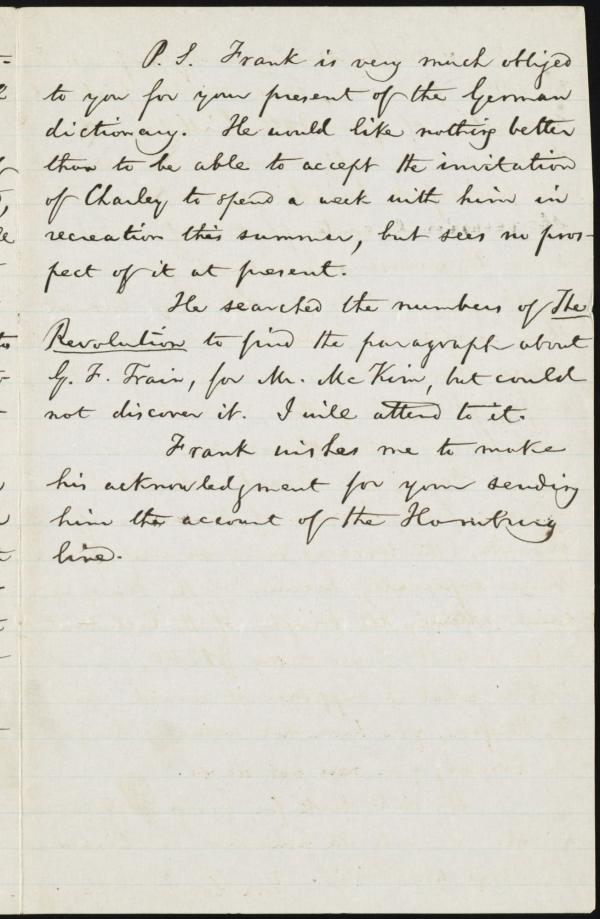 P. S. Frank is very much obliged
to you for your present of the German
dictionary. He would like nothing better
than to be able to accept the invitation
of Charley to spend a week with him in
recreation this summer, but sees no pros-
pect of it at present.
He searched the numbers of The
Revolution to find the paragraph about
G. F. Train, for Mr. McKim, but could
not discover it. I will attend to it.
Frank wishes me to make
his acknowledgment for your sending
him the account of the Hornburg
line.